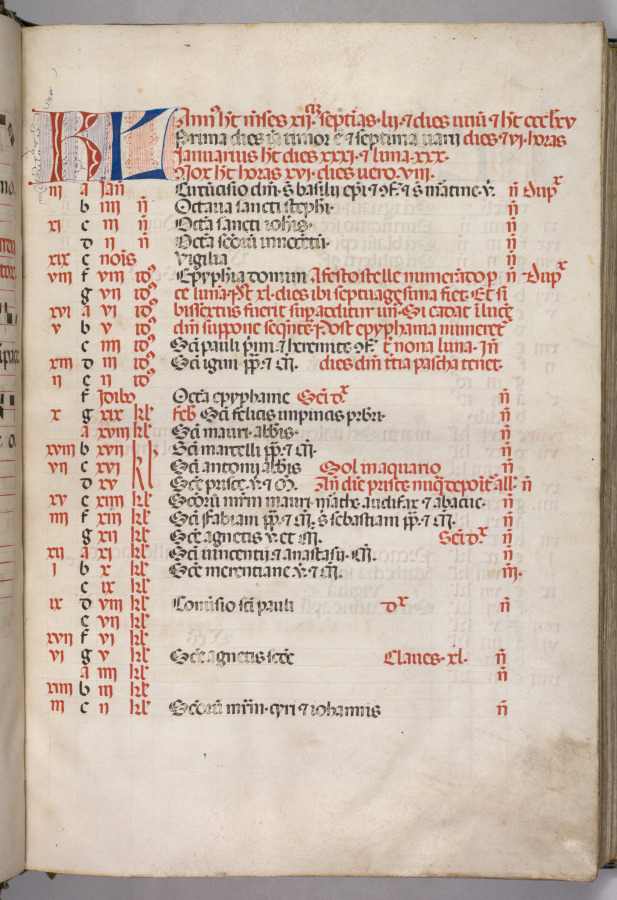 KL Annus ht mses xii septias lii ⁊ dies unu ⁊ ht ccclxv
Prima dies timor e ⁊ septima uarii dies ⁊ vi horas
Januarius ht dies xxxi ⁊ luna xxx
Nox ht horas xvi dies uero viii
iii a Jan Circucisio dni s basilij epi ⁊ 9f ⁊ s martine v n Dup
b iiii n Octaua sancti stephi n
xi c iii n Octa sancti iohis n
d ii n Octa scoru innocetu n
xix e nois vigilia n
viii f viii id9 Epyphia domini A festo stelle numerado p n Dup
g vii id9 te luna Pt xl dies ibi septuagesima fiet Et si
xvi a vi id9 bisextus fuerit supadditur un Si cadat i luce
v b v id9 dni suppone seqnte Post epyphania numeret
c iiii id9 Sci pauli pimi heremite 9f t nona luna In
xiii d iii id9 Sci igini pp ⁊ m dies dni ttia pascha tenet
ii e ii id9
f Idibs Octa epyphanie Sci n
x g xix kl feb Sci felicis in pincis prbri n
a xviii kl Sci mauri abbis n
xviii b xvii kl Sci marcelli pp ⁊ m n
vii c xvi kl Sci antonij abbis Sol in aquario n
d xv kl Sce prisce v ⁊ m n
xv e xiiii kl Scoru mrm marii marthe audifax ⁊ abacuc n
iiii f xiii kl Sci fabiani pp ⁊ m s sebastiani m n
g xii kl Sce agnetis v et m n
xii a xi kl Sci uincentij ⁊ anastasij m n
i b x kl Sce merentiane v ⁊ m n
c ix kl
ix d viii kl Conuersio sci pauli n
e vii kl
xvii f vi kl
vi g v kl Sce agnetis scde Claues xl n
a iiii kl n
xiiii b iii kl
iii c ii kl Scoru mrm cyri ⁊ iohannis n